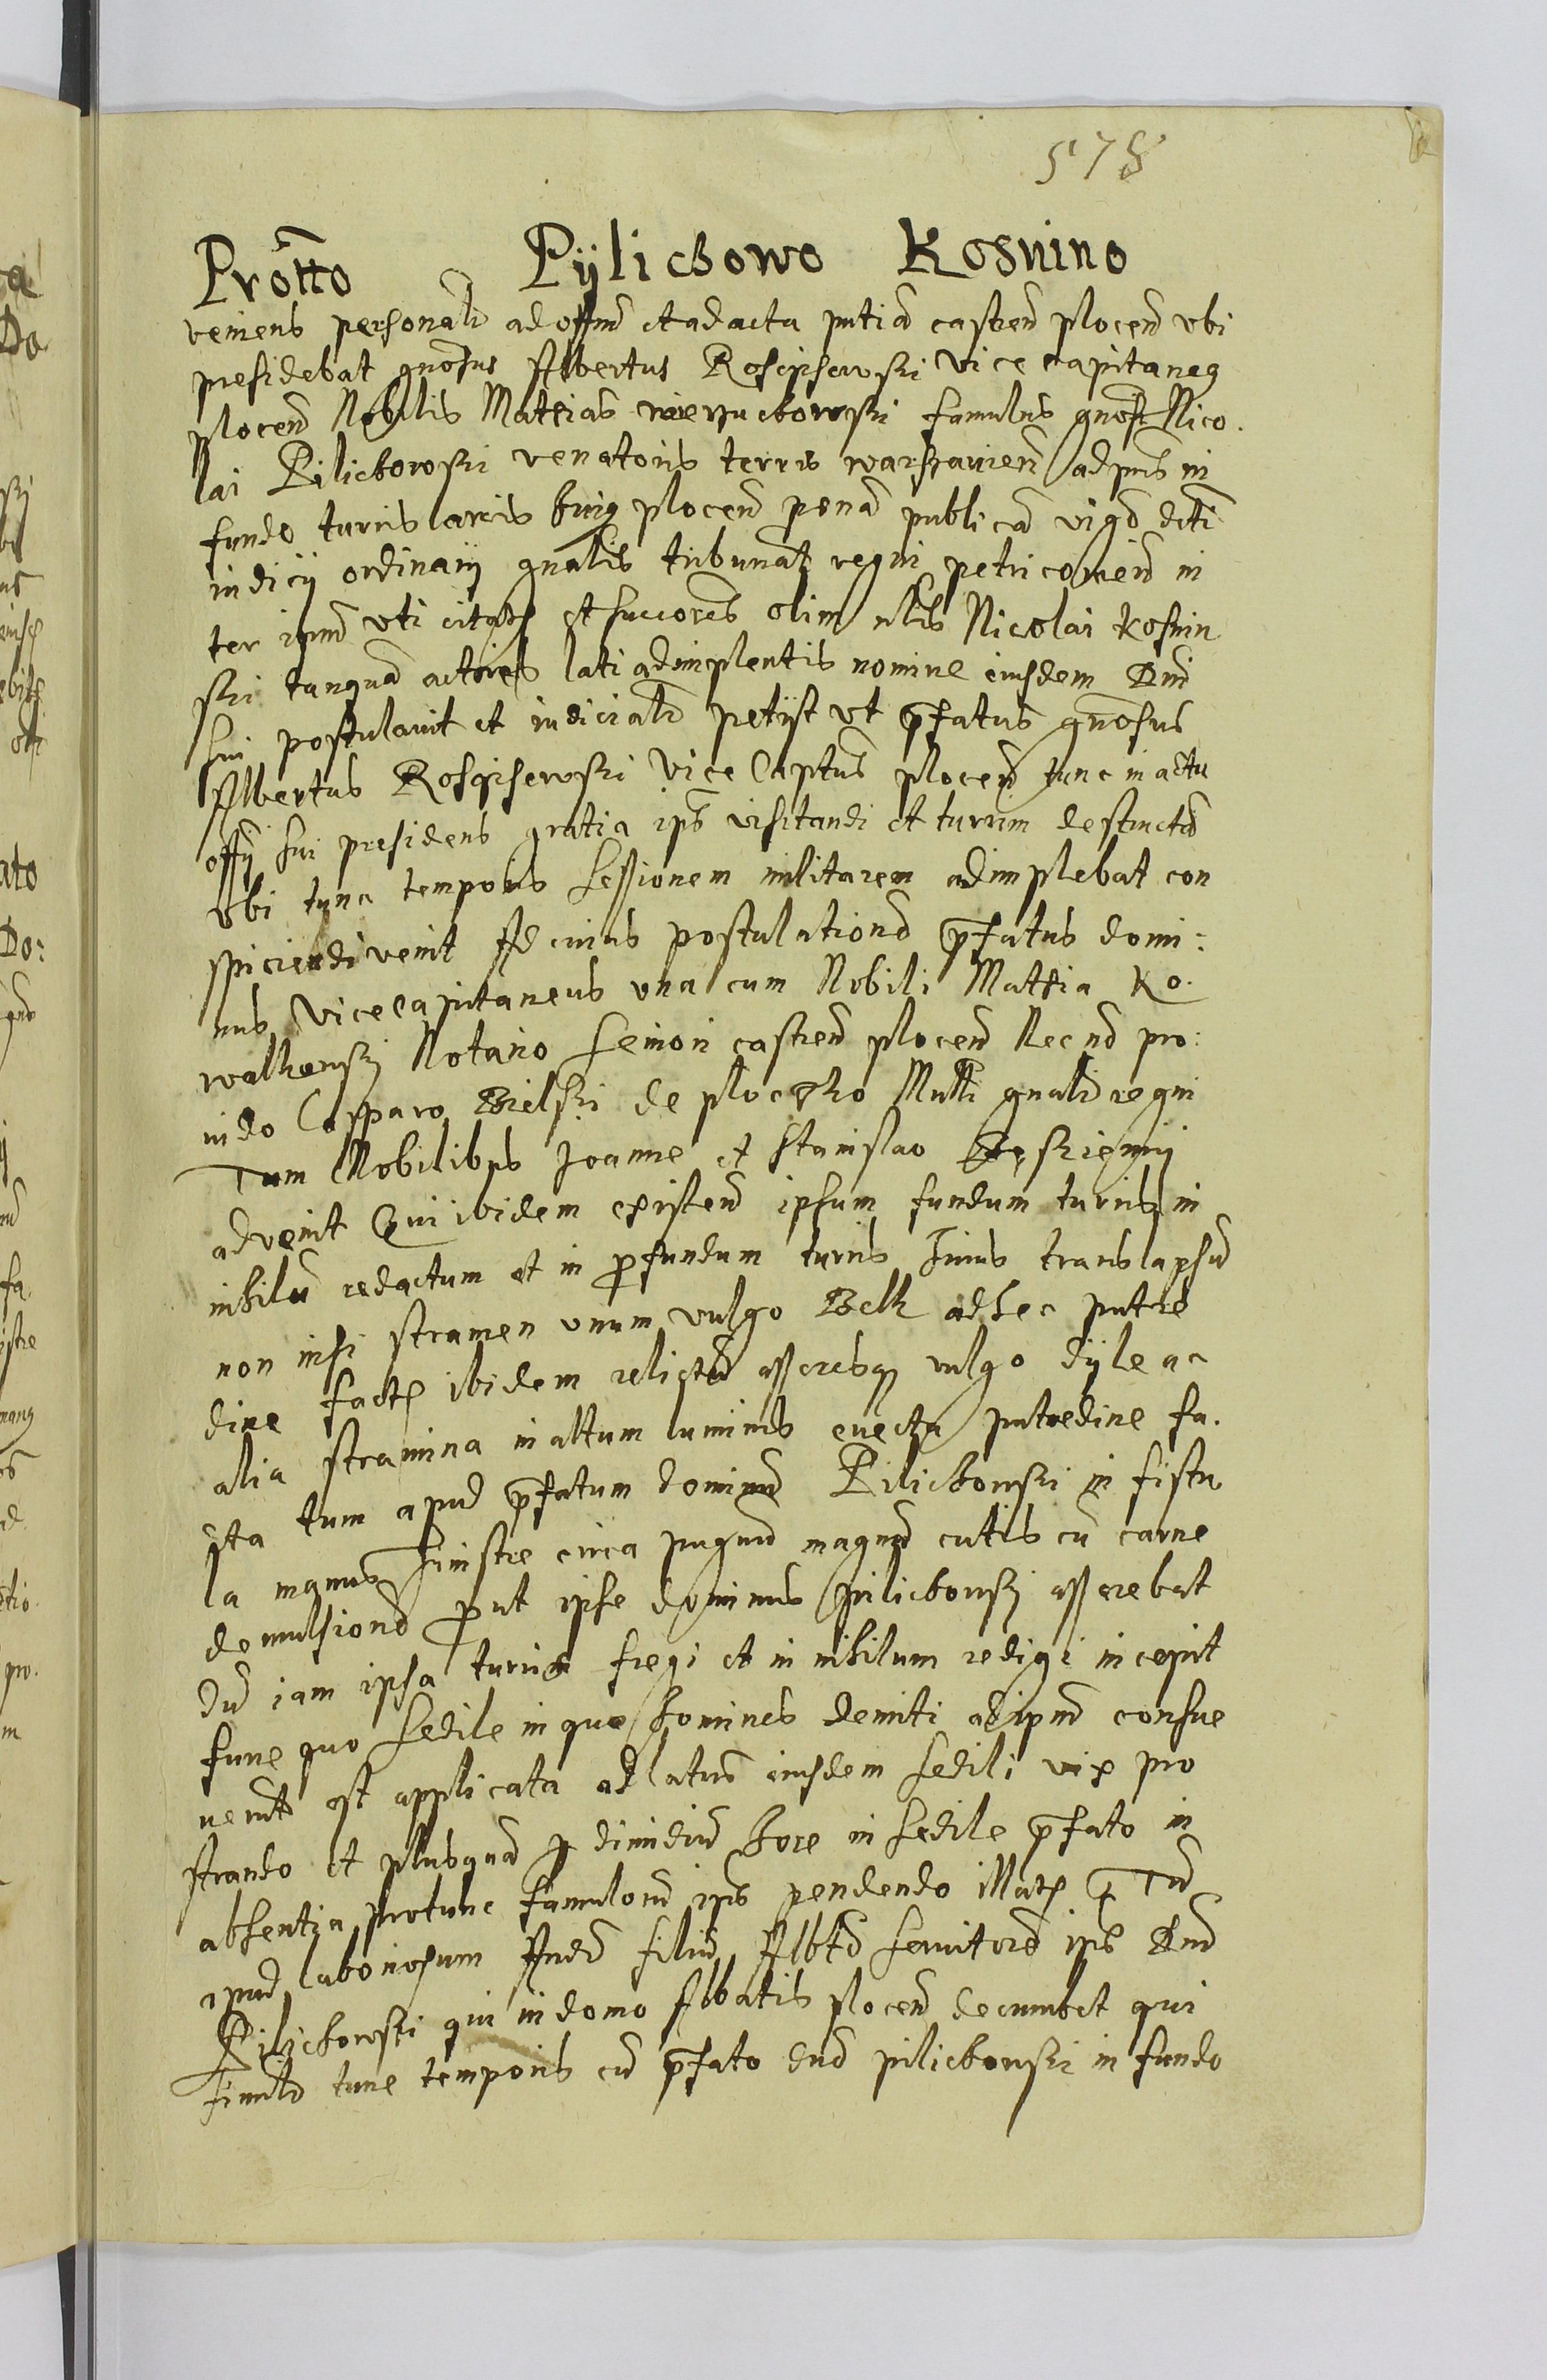 578
Prõtto Pÿlichowo Kosnino
veniens personalr ad offm et ad acta pntia castren plocen vbi
presidebat gnosus Albertus Rosciszewski vice capitaneg
plocen Nobilis Mathias famulus gnosi Nico.
lai Pilichowski venatoris terris warssauien ad pns in
fundo turris arcis huig plocen pena publica vig dcti
iudicy ordinarÿ gnalis tribunal regni petricouien in
ter ipm vti citatu et succores olim nblis Nicolai Kosnin
ski tanqua actores lati adimplentis nomine eiusdem Dni
sui postulauit et iudicialr petyt vt pfatus gnosus
Albertus Rosciszewski vice Captus plocen tunc in actu
offÿ sui presidens gratia ips visitandi et turrim destructa
vbi tunc temporis sessionem militarem adimplebat con
spiciendi venit Ad cuius postulatione pfatus domi:
nus Vicecapitaneus vna cum Nobili Mathia Ko.
walkowski Notario Seniori castren plocen Nec no pro:
uido Casparo Bielski de plocsko Mstli gnali regni
Tum Nobilibus Joanne et Stanislao
aduenit Qui ibidem existen ipsum fundum turris in
nihilu redactum et in pfundum turris Imus translapsu
non nisi stramen vnum vulgo Belk ad hec putre
dine factu ibidem relictu asseresq vulgo dÿle ac
alia stramina in altum luminis euecta putredine fa.
cta tum apud pfatum dominu Pilichowski in fistu
la manus sinistre circa pugnu magna cutis cu carne
demulsione put ipse dominus Pilichowski asserebat
du iam ipsa turris fregi et in nihilum redigi incepit
fune quo sedile in quo homines demiti ad ipm consue
uerut est applicata ad latus eiusdem sedili vix pro
strando et plusqua p dimidiu hore in sedile pfato in
absentia protunc famuloru ips pendendo illatu Tu
apud laboriosum Andr filiu Albti seruitore ips Dni
Pilichowski qui in domo Abbatis plocen decumbet qui
similr tunc temporis cu pfato dno pilichowski in fundo